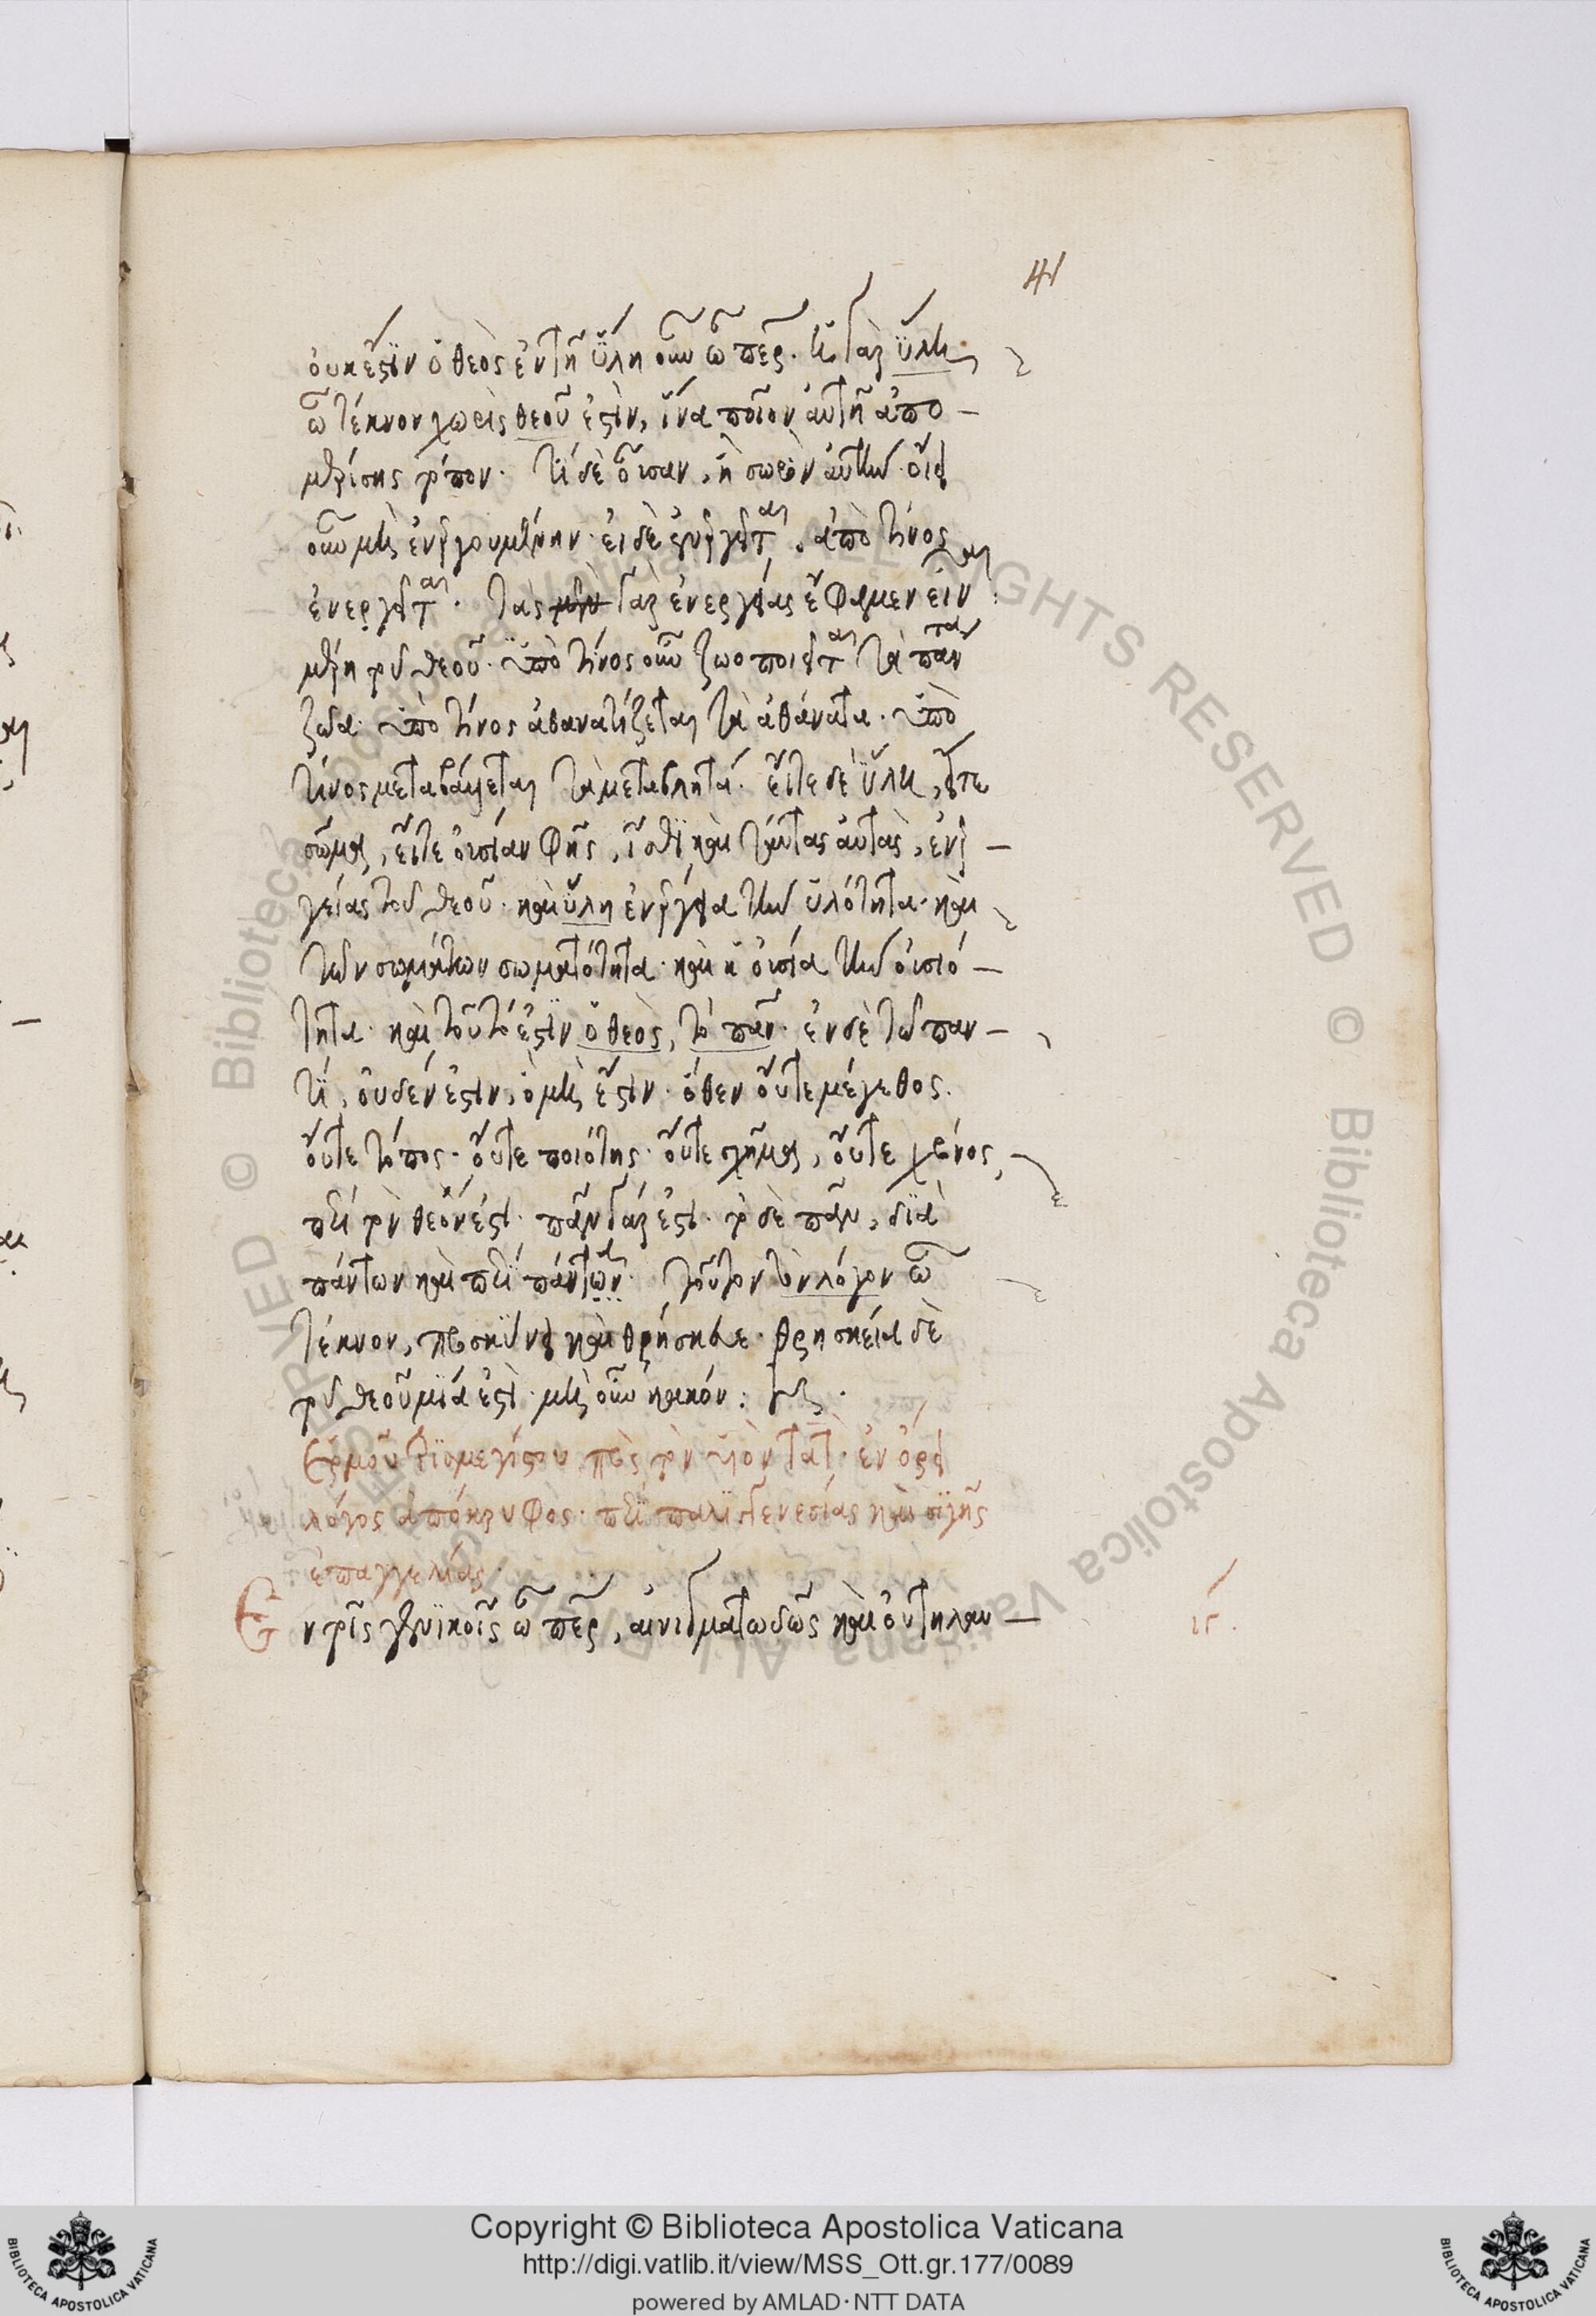 41
οὐκ ἔστιν ὁ θεὸς ἐν τῆ ὕλη οὖν ὦ περ. τί γὰρ ὕλη
ὦ τέκνον χωρὶς θεοῦ ἐστὶν, ἵνα ποῖον αὐτῆ ἀπο-
μερίσης τόπον. τί δὲ οὖσαν, ἢ σωρὸν αὐτὴν οἴει
οὖν μὴ ἐνεργουμένην. εἰ δὲ ἐνεργεῖται, ἀπὸ τίνος
ἐνεργεῖται. τὰς γὰρ ἐνεργείας ἔφαμεν εἶναι
μέρη τοῦ θεοῦ. ὑπὸ τίνος οὖν ζωοποιεῖται τὰ πάντα
ζῶα. ὑπὸ τίνος ἀθανατίζεται τὰ ἀθάνατα. ὑπὸ
τίνος μεταβάλεται τὰ μεταβλητά. εἴτε δὲ ὕλη, εἴτε
σῶμα, εἴτε οὐσίαν φῆς, ἴσθι καὶ ταύτας αὐτὰς, ἐνερ-
γείας τοῦ θεοῦ. καὶ ὕλη ἐνέργεια τὴν ὑλότητα. καὶ
τῶν σωμάτων σωματότητα. καὶ ἡ οὐσία τὴν οὐσιό-
τητα. καὶ τοῦτό ἐστιν ὁ θεὸς, τὸ πᾶν. ἐν δὲ τῶ παν-
τί, οὐδέν ἐστιν, ὃ μὴ ἔστιν. ὅθεν οὔτε μέγεθος.
οὔτε τόπος. οὔτε ποιότης. οὔτε σχῆμα, οὔτε χρόνος,
περὶ τὸν θεόν ἐστι. πᾶν γάρ ἐστι. τὸ δὲ πᾶν, διὰ
πάντων καὶ περὶ πάντων. τοῦτον τὸν λόγον ὦ
τέκνον, προσκύνει καὶ θρήσκευε. θρησκεία δὲ
τοῦ θεοῦ μία ἐστὶ. μὴ οὖν κακόν:
Ἑρμοῦ τρισμεγίστου πρὸς τὸν υἱὸν τάτ. ἐν ὄρει
λόγος ἀπόκρυφος. περὶ παλιγγενεσίας καὶ σιγῆς
ἐπαγγελίας.
Ἐν τοῖς γενικοῖς ὦ περ, αἰνιγματωδῶς καὶ οὐ τηλαυ-
ιγ.
Copyright © Biblioteca Apostolica Vaticana
http://digi.vatlib.it/view/MSS_Ott.gr.177/0089
powered by AMLAD·NTT DATA